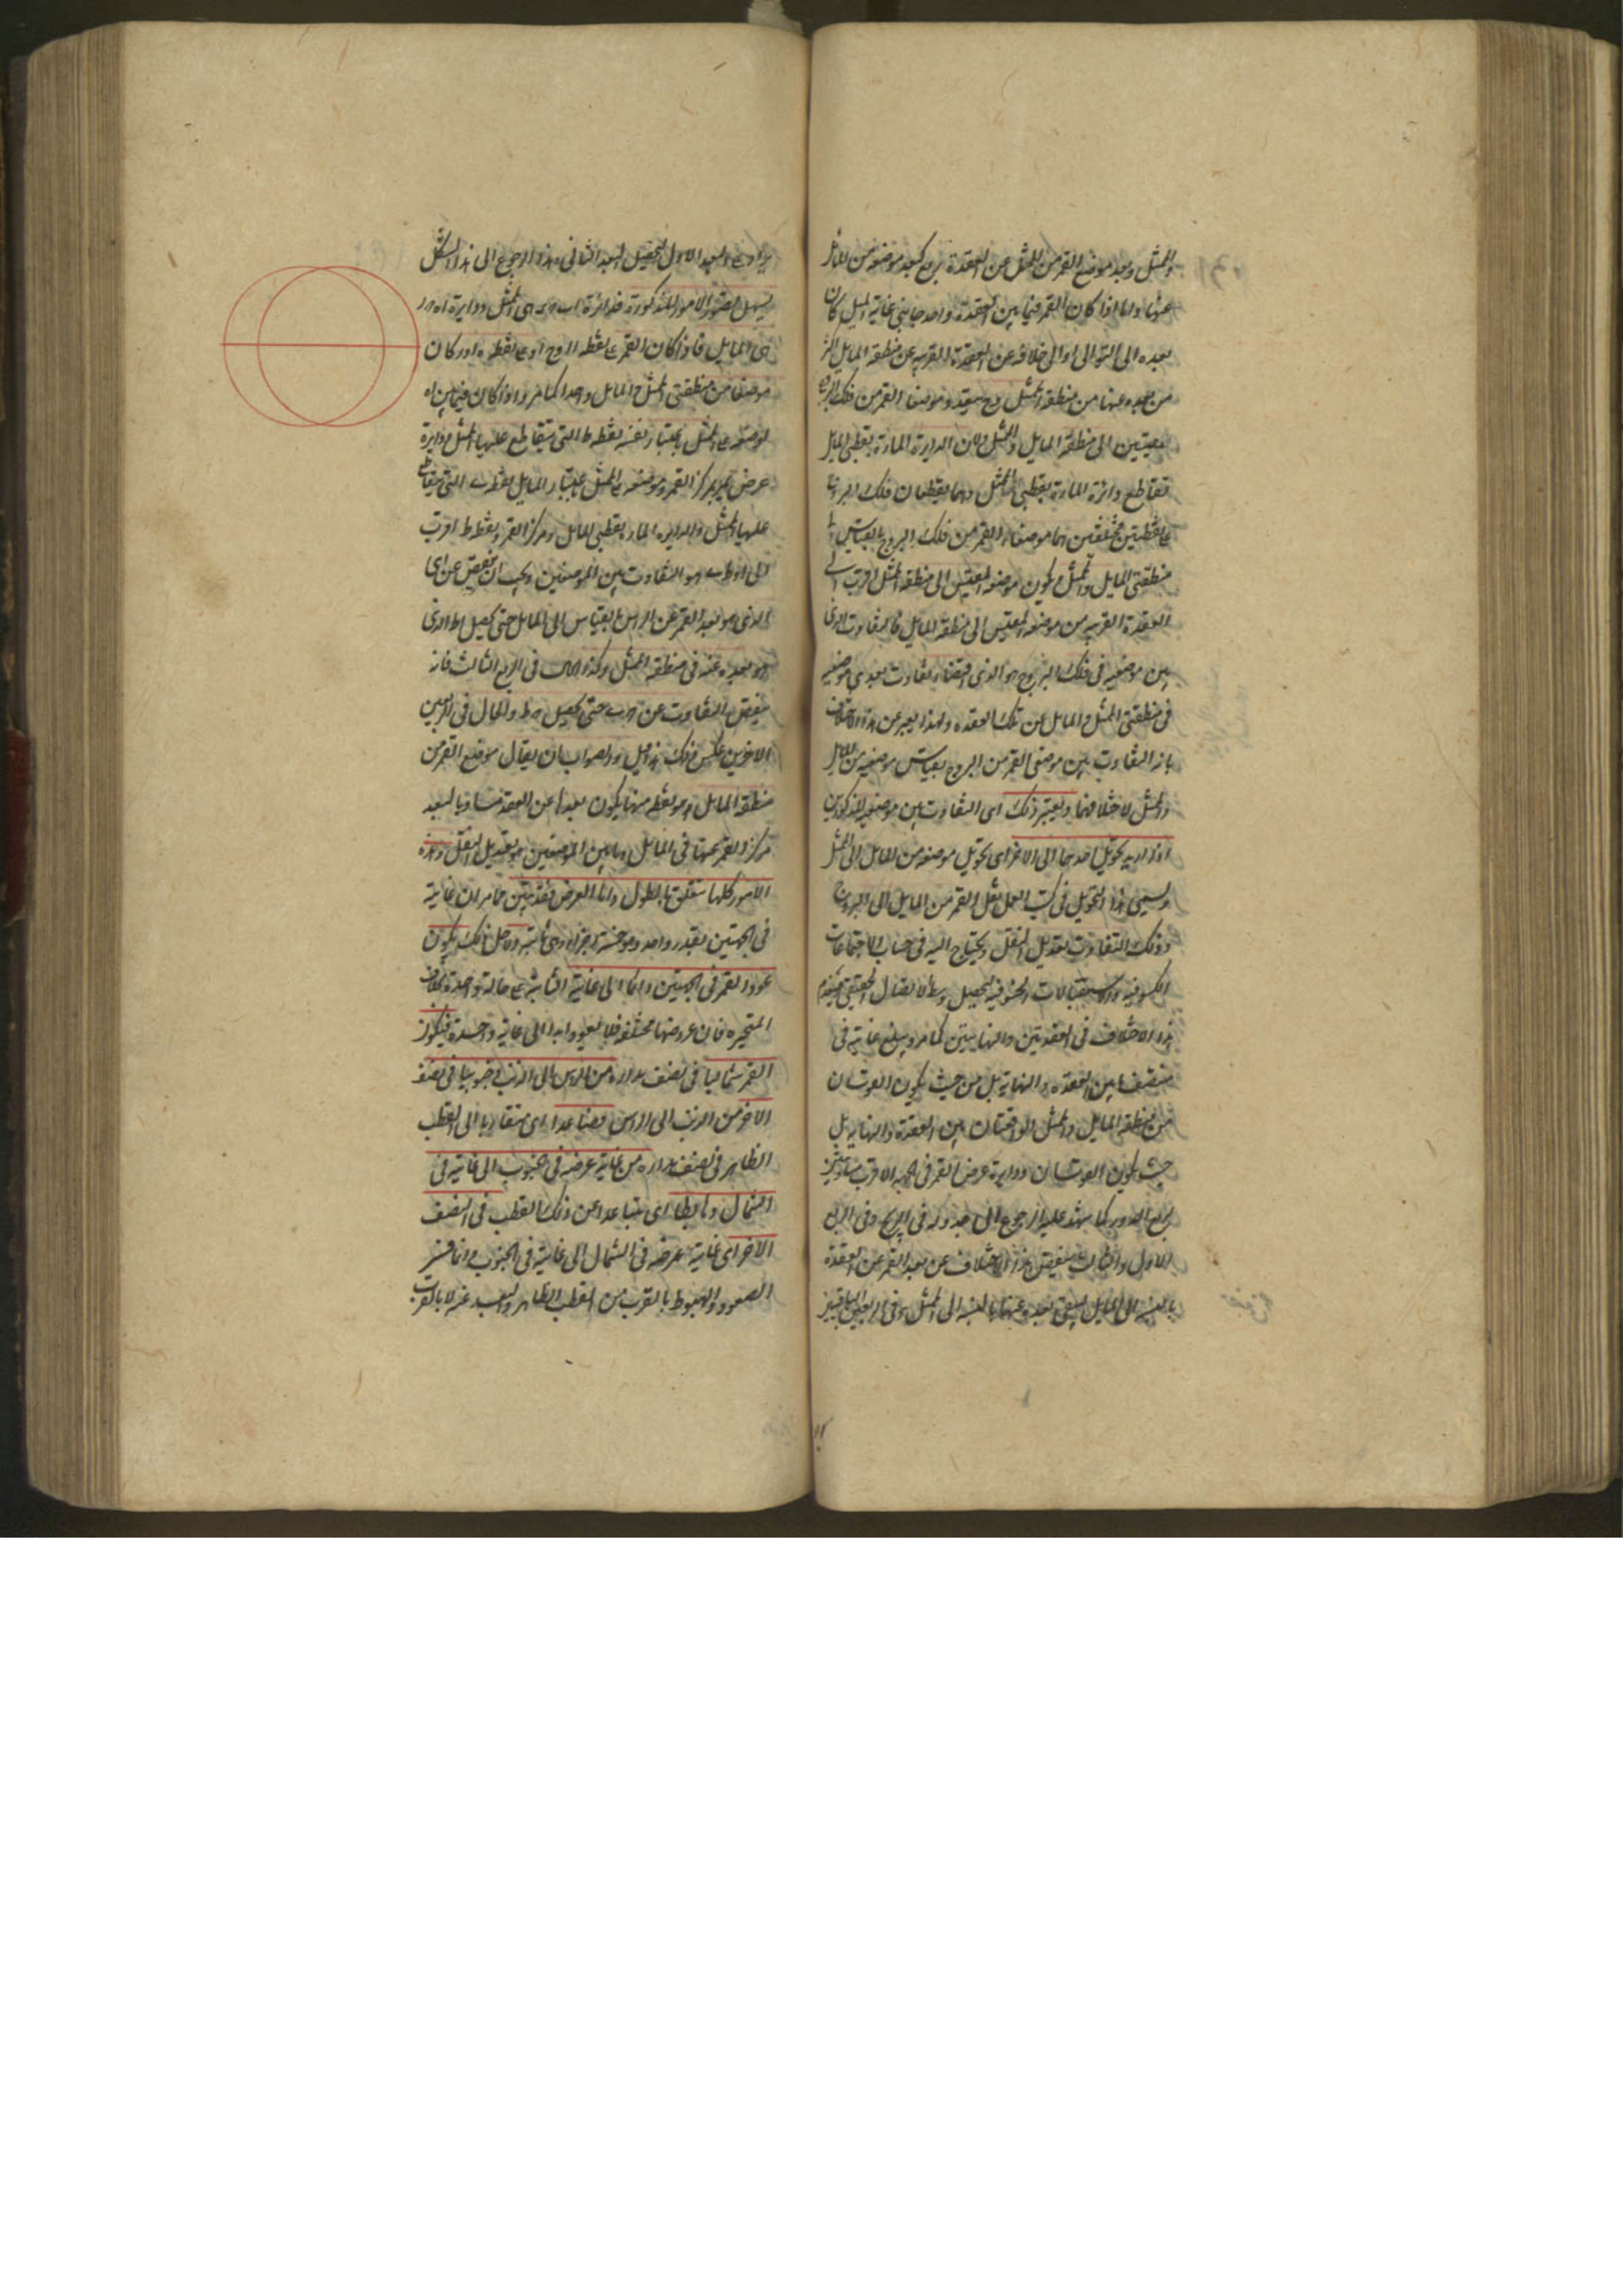 والممثل وبعد موضع القمر من الممثل عن العقدة بربع كبعد موضعه من المائل
عنها واما اذا كان القمر فيما بين العقدة واحد جانبي غاية الميل كان
بعده الى التوالى او الى خلافه عن العقدة القريبة عن منطقة المايل اكثر
من بعده عنها من منطقة الممثل وح يتعدد موضعا القمر من فلك البروج
المقيسين الى منطقة المايل والممثل لان الدايرة المارة بقطبي المايل
تقاطع دائرة المارة بقطبي الممثل وهما يقطعان فلك البروج
على نقطتين مختلفتين هما موضعا القمر من فلك البروج بالقياس الى
منطقتي المايل والممثل ويكون موضعه المقيس الى منطقة الممثل اقرب الى
العقدة القريبة من موضعه المقيس الى منطقة المايل فالتفاوت الذى
بين موضعيه فى فلك البروج هو الذى اقتضاه تفاوت بعدي موضعيه
فى منطقتي الممثل والمايل عن تلك العقدة ولهذا يعبر عن هذا الاختلاف
بانه التفاوت بين موضعي القمر من البروج بقياس موضعيه من المايل
والممثل لاختلافهما ويعتبر ذلك اى التفاوت بين موضعيه المذكورين
اذا اريد تحويل احدهما الى الاخر اى تحويل موضعه من المايل الى الممثل
ويسمى هذا التحويل فى كتب العمل نقل القمر من المايل الى البروج
وذلك التفاوت تعديل النقل ويحتاج اليه فى حساب الاجتماعات
الكسوفية والاستقبالات الخسوفية لتحصيل وسط الاتصال الحقيقى
هذا الاختلاف فى العقدتين والنهايتين كما مر ويبلغ غايته فى
منتصف ما بين العقدة والنهاية بل من حيث يكون القوسان
من منطقة المايل والممثل الواقعتان بين العقدة والنهاية بل
حيث يكون القوسان ودايرة عرض القمر فى الجهة الاقرب
بربع الدور كما يشهد عليه الرجوع الى جدوله فى الزيج وفى الربع
الاول والثالث ينقص هذا الاختلاف عن بعد القمر عن العقدة
بالنسبة الى المايل ليبقى بعده عنها بالنسبة الى الممثل وفى الربعين الباقيين
يزاد على البعد الاول لتحصيل البعد الثانى وبالرجوع الى هذا الشكل
يسهل تصور الامور المذكورة فدائرة هى الممثل ودايرة
هى المايل فاذا كان القمر على نقطه او على نقطه كان
موضعا من منطقتي الممثل والمايل واحدا كما مر واذا كان فيما بين
فموضعه على الممثل باعتبار نفسه نقطه ط التى يتقاطع عليها الممثل ودايرة
عرض تمر بمركز القمر وموضعه على الممثل باعتبار المايل نقطه التى يتقاطع
عليها الممثل والدايرة المارة بقطبي المايل ومركز القمر ونقطة ط اقرب
الى وهو التفاوت بين الموضعين ويجب ان ينقص عن
الذى هو بعد القمر عن الراس بالقياس الى المايل حتى يحصل اط الذى
هو بعده عنه فى منطقة الممثل وكذا الحال فى الربع الثالث فانه
ينقص التفاوت عن حتى يحصل والحال فى الربعين
الاخيرين عكس ذلك هذا قيل والصواب ان يقال موضع القمر من
منطقة المايل هو نقطه منها يكون بعدها عن العقدة مساويا لبعد
مركز القمر عنها فى المايل وما بين الموضعين هو تعديل النقل وهذه
الامور كلها تتعلق بالطول واما العرض فقد تبين مما مر ان غايته
فى الجهتين بقدر واحد وهو خمسة اجزاء وهى ثابتة ولاجل ذلك يكون
عود القمر فى الجهتين دائما الى غايته الثابتة على حالة واحدة بخلاف
المتحيرة فان عروضها مختلفة فلا يعود ابدا الى غاية واحدة فيكون
القمر شماليا فى نصف مداره من الراس الى الذنب وجنوبيا فى نصفه
الاخر من الذنب الى الراس وصاعدا اى متقاربا الى القطب
الظاهر فى نصف مداره من غاية عرضه فى الجنوب الى غايته فى
الشمال وهابطا اى متباعدا عن ذلك القطب فى النصف
الاخر اى غاية عرضه فى الشمال الى غايته فى الجنوب وانما فسر
الصعود والهبوط بالقرب من القطب الظاهر والبعد عنه لا بالقرب